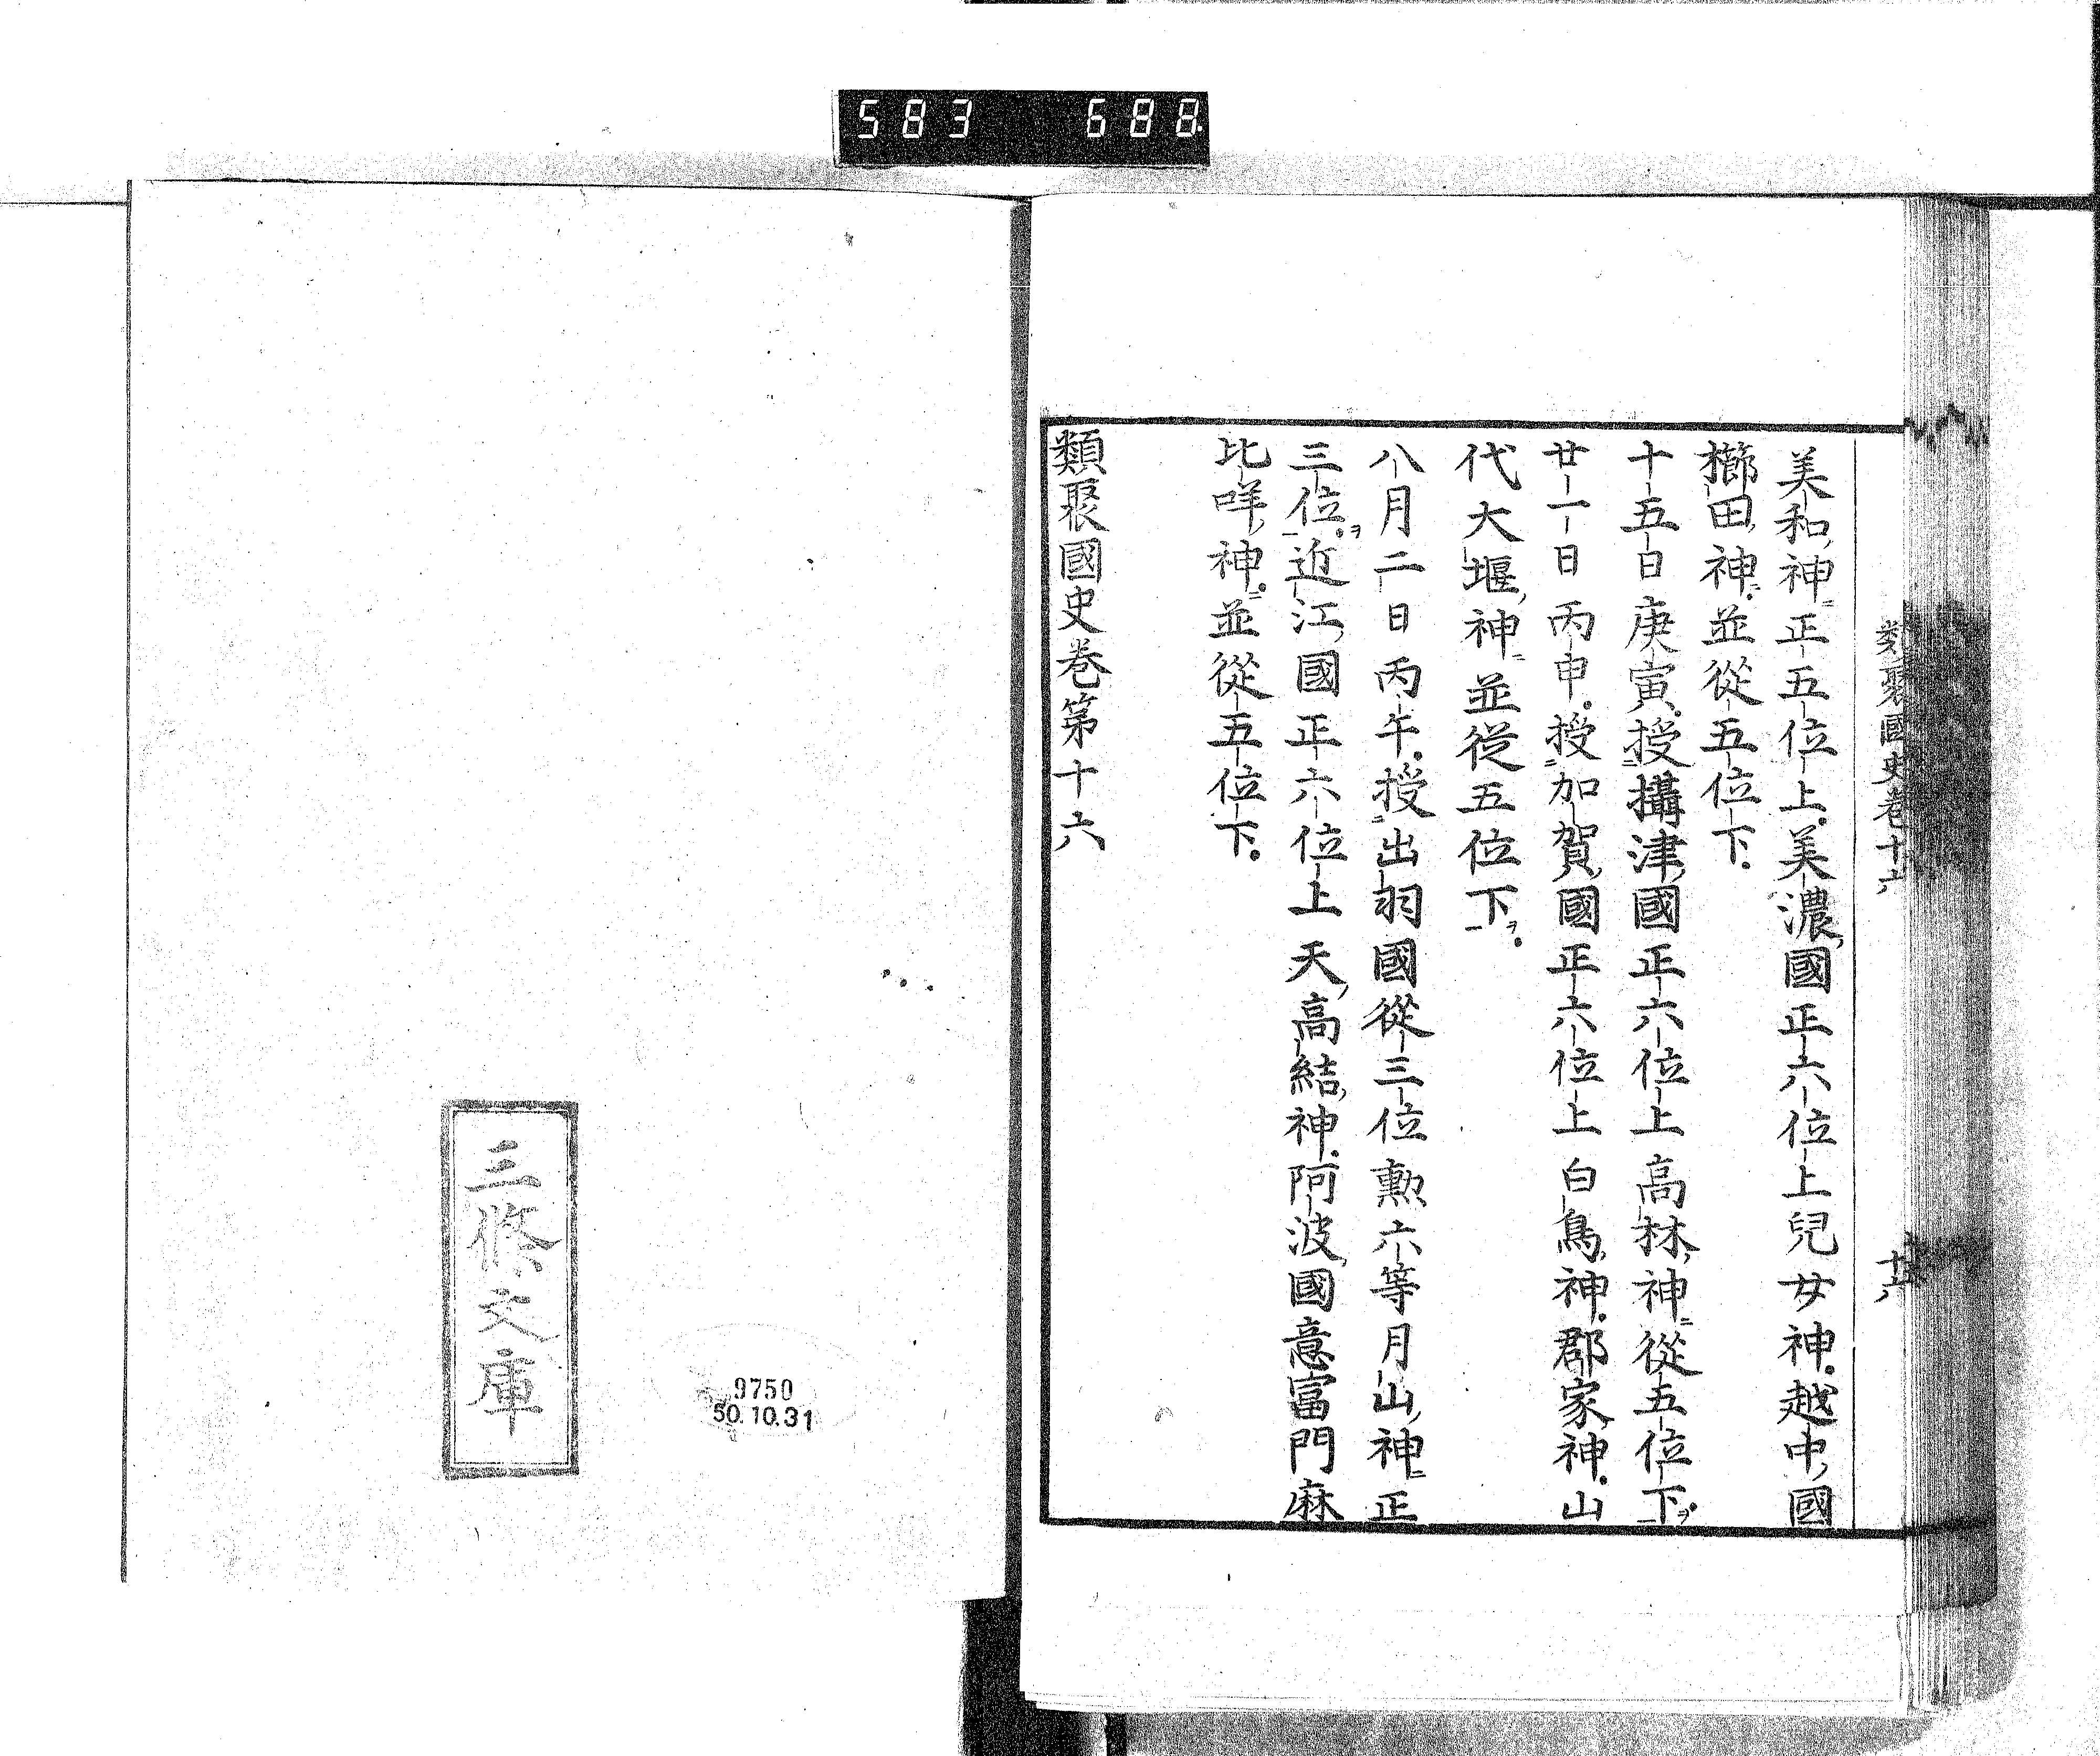 583 688
類聚國史卷十六
十六
美和神正五位上。美濃國正六位上兒女神。越中國
櫛田神。並從五位下。
十五日庚寅。授攝津國正六位上高林神從五位下。
廿一日丙申。授加賀國正六位上白鳥神。郡家神。山
代大堰神並從五位下。
八月二日丙午。授出羽國從三位勲六等月山神正
三位。近江國正六位上天高結神。阿波國意富門麻
比咩神。並從五位下。
類聚國史卷第十六
9750
50.10.31
三條文庫